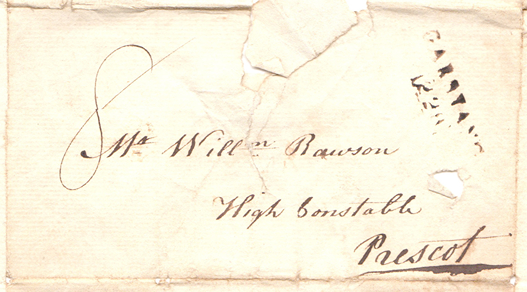 GARSTANG
8
Mr Willm Rawson
High Constable
Prescot